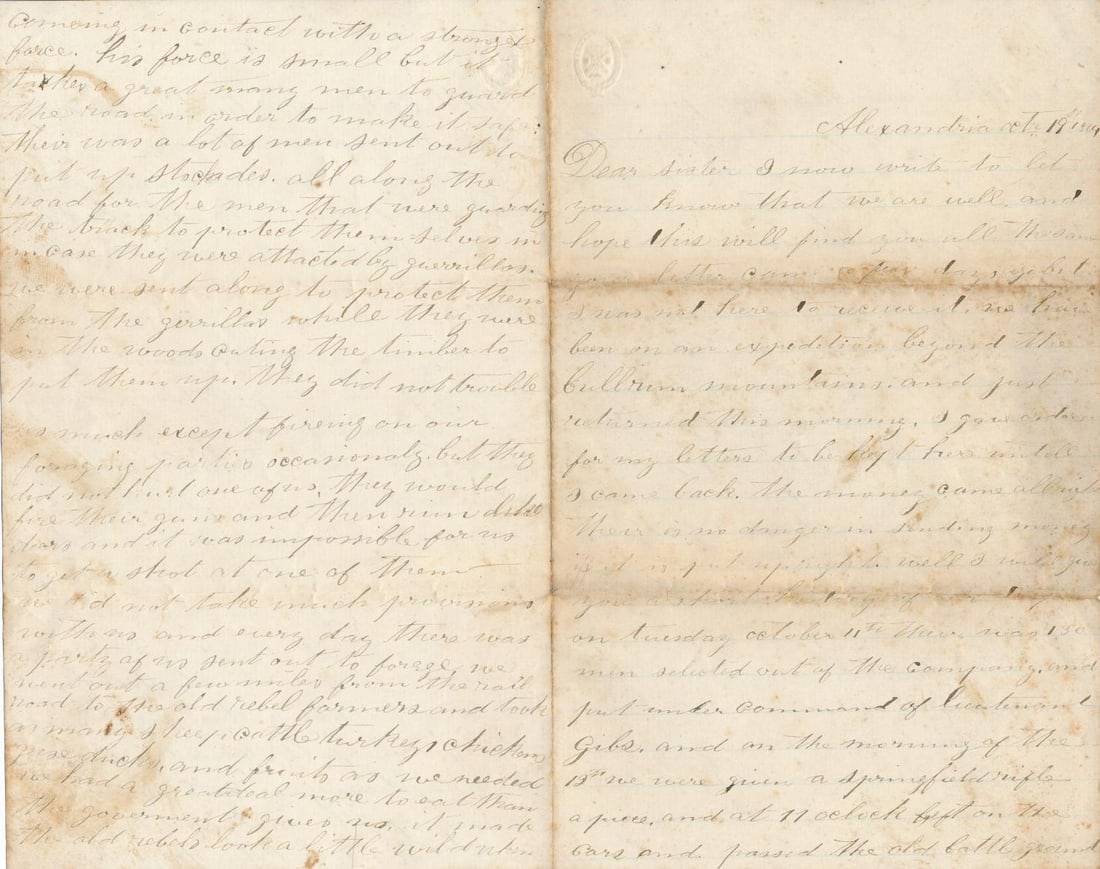 Alexandria oct, 19th 1864
Dear sister I now write to let
you know that we are well, and
hope this will find you all the same
your letter came a few days ago but
I was not here to receive it. we have
been on an expedition beyond the
bullrun mountains. and just
returned this morning. I gave orders
for my letters to be kept here untill
I came back. the money came all right
their is no danger in sending money
if it is put up right. well I will give
you a short history of our
on tuesday october 11th their was 150
men selected out of the company. and
put under command of lieutenant
Gibs. and on the morning of the
12th we were given a springfield rifle
a piece, and at 11 oclock left on the
cars and passed the old battle ground
comeing in contact with a stronger
force. his force is small but it
takes a great many men to guard
the road in order to make it safe.
their was a lot of men sent out to
put up stockades. all along the
road for the men that were guarding
the track to protect them-selves in
in case they were attacted by guerrillas.
we were sent along to protect them
from the gerrillas while they were
in the woods cuting the timber to
put them up. they did not trouble
us much except fireing on our
foraging parties occasionaly. but they
did not hurt one of us. they would
fire their guns and then run like
and it was impossible for us
to get a shot at one of them
we did not take much provisions
with us and every day there was
a party of us sent out to forage, we
went out a few miles from the rail
road to the old rebel farmers and took
as many sheep cattle turkeys chickens
geese ducks. and fruits as we needed
we had a great deal more to eat than
the goverment gives us. it made
the old rebels look a little wild when